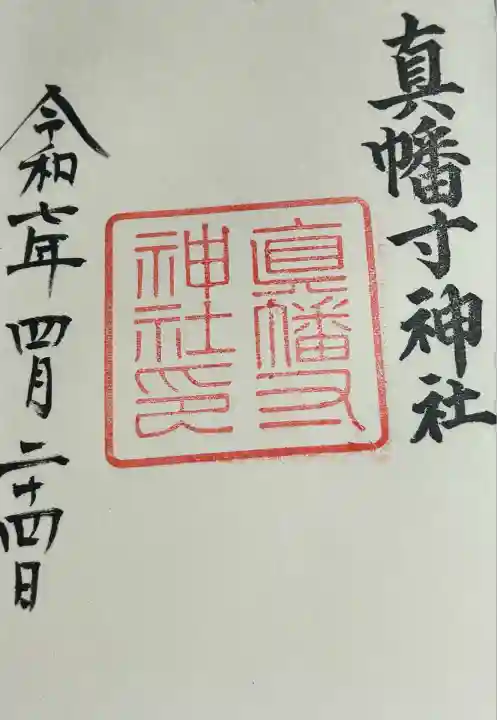 真幡寸神社
真幡寸
神社印
令和七年 四月二十四日